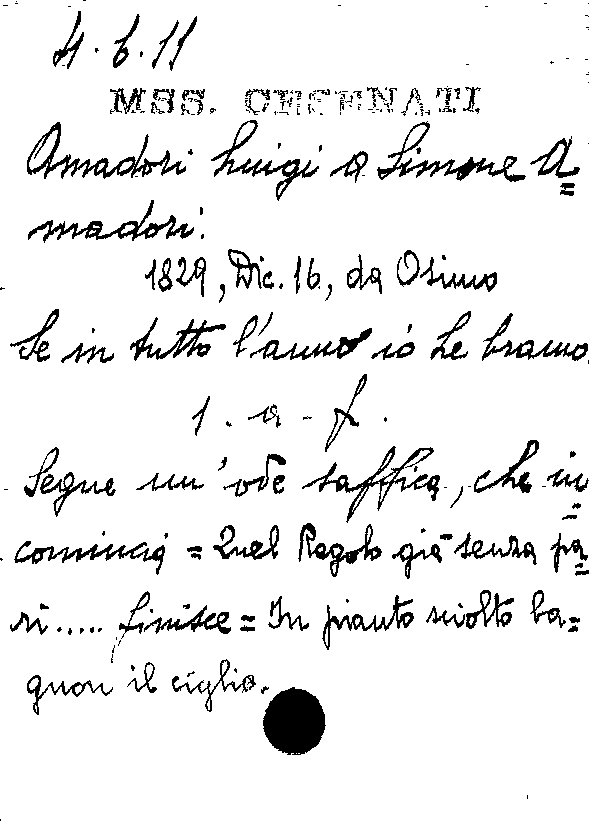 4.6.11
MSS. CESENATI
Amadori Luigi a Simone A=
madori.
1829, Dic. 16, da Osimo
Se in tutto l'anno io Le bramo
1. a - f.
Segue un'ode saffica, che in=
comincia = Quel Regolo già senza pa=
ri..... finisce = In pianto sciolto ba=
gnon il ciglio.